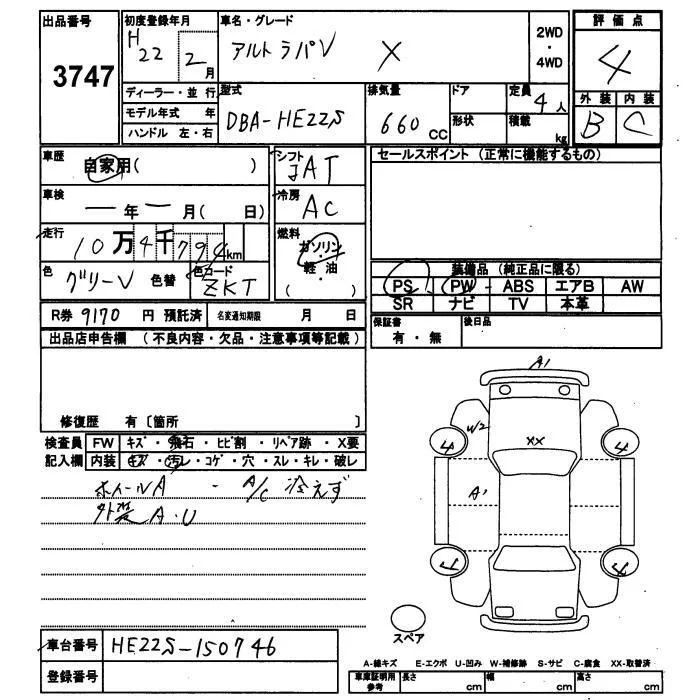 出品番号
3747
初度登録年月
H22 2月
車名・グレード
アルトラパン X
2WD
・
4WD
評価点
4
外装 内装
B C
ディーラー・並行
モデル年式 年
ハンドル 左・右
型式
DBA-HE22S
排気量
660 CC
ドア
形状
定員
4人
積載
kg
車歴
自家用( )
車検
— 年 — 月( 日)
走行
10万4千794km
色
グリーン 色替
色コード
ZKT
シフト
JAT
冷房
AC
燃料
ガソリン・
軽油
( )
セールスポイント(正常に機能するもの)
装備品(純正品に限る)
PS PW ABS エアB AW
SR ナビ TV 本革
R券 9170 円 預託済 名変通知期限 月 日
保証書
有・無
後日品
出品店申告欄(不良内容・欠品・注意事項等記載)
修復歴 有〔箇所 〕
検査員 FW キズ・飛石・ヒビ割・リペア跡・X要
記入欄 内装 キズ・汚レ・コゲ・穴・スレ・キレ・破レ
ホイールA - A/C 冷えず
外装 A・U
A1
W2
XX
4 4
A1
4 4
スペア
車台番号 HE22S-150746
登録番号
A-線キズ E-エクボ U-凹み W-補修跡 S-サビ C-腐食 XX-取替済
車庫証明用
参考
長さ cm 幅 cm 高さ cm